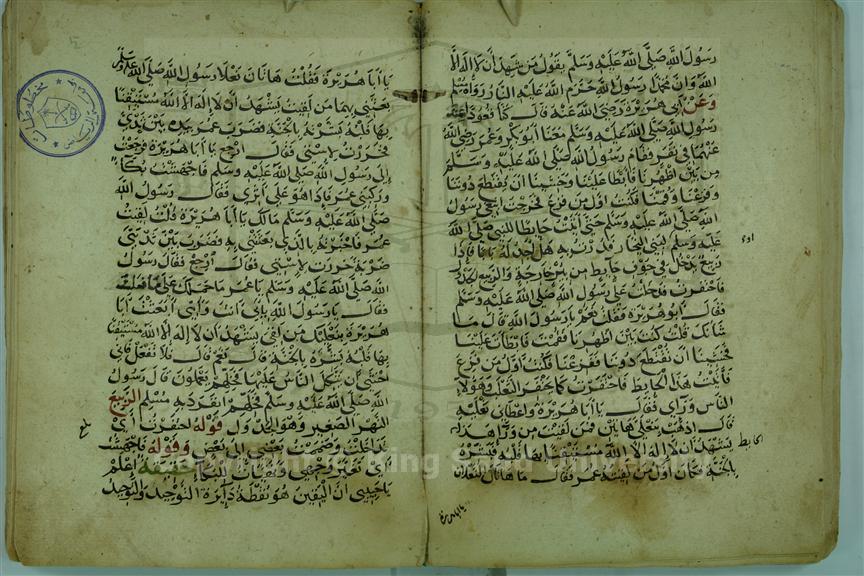 رسول الله صلى الله عليه وسلم يقول من شهد أن لا إله إلا
الله وان محمدا رسول الله حرم الله عليه النار رواه مسلم
وعن أبي هريرة رضي الله عنه قال كنا قعودا عند
رسول الله صلى الله عليه وسلم معنا أبو بكر وعمر رضي الله
عنهما في نفر فقام رسول الله صلى الله عليه وسلم
من بين أظهرنا فأبطأ علينا وخشينا ان يقتطع دوننا
وفزعنا وقمنا فكنت اول من فزع فخرجت ابتغي رسول
الله صلى الله عليه وسلم حتى أتيت حايطا للنبي صلى الله
عليه وسلم لبني النجار فدرت به هل اجد له بابا فاذا
ربيع يدخل في جوف حايط من بئر خارجة والربيع الجدول
فاحتفزت فدخلت على رسول الله صلى الله عليه وسلم
فقال أبو هريرة فقلت نعم يا رسول الله قال ما
شانك قلت كنت بين اظهرنا فقمت فابطأت علينا
فخشينا ان تقتطع دوننا ففزعنا فكنت اول من فزع
فأتيت هذا الحايط فاحتفزت كما يحتفز الثعلب وهؤلاء
الناس ورآي فقال يا ابا هريرة واعطاني نعليه
قال اذهب بنعلي هاتين فمن لقيت من ورآ هذا
الحايط
يشهد ان لا اله الا الله مستيقنا بها قلبه فبشره
بالجنة فكان اول من لقيته عمر فقال ما هاتان النعلان
يا ابا هريرة
يا أبا هريرة فقلت هاتان نعلا رسول الله صلى الله عليه وسلم
بعثني بهما من لقيت يشهد أن لا إله الا الله مستيقنا
بها قلبه بشرته بالجنة فضرب عمر بيده بين ثديي
فخررت لاستي فقال ارجع يا أبا هريرة فرجعت
إلى رسول الله صلى الله عليه وسلم فاجهشت بكآء
وركبني عمر فاذا هو على أثري فقال رسول الله
صلى الله عليه وسلم مالك يا أبا هريرة قلت لقيت
عمر فاخبرته بالذي بعثتني به فضرب بين ثديي
ضربة خررت لاستي فقال ارجع فقال رسول
الله صلى الله عليه وسلم يا عمر ما حملك على ما فعلت
فقال يا رسول الله بأبي انت وأمي أبعثت أبا
هريرة بنعليك من لقي يشهد أن لا اله الا الله مستيقنا
بها قلبه بشره بالجنة قال نعم قال فلا تفعل فاني
اخشى أن يتكل الناس عليها فخلهم يعملون قال رسول
الله صلى الله عليه وسلم فخلهم انفرد به مسلم الربيع
النهر الصغير وهو الجدول وقوله احتفزت أي
تداخلت وضممت بعضي إلى بعض وقوله فاجهشت
أي تغير وجهي للبكاء اعلم
يا حبيبي ان اليقين هو نقطة دايرة التوحيد والتوحيد
بلغ
مخطوطات